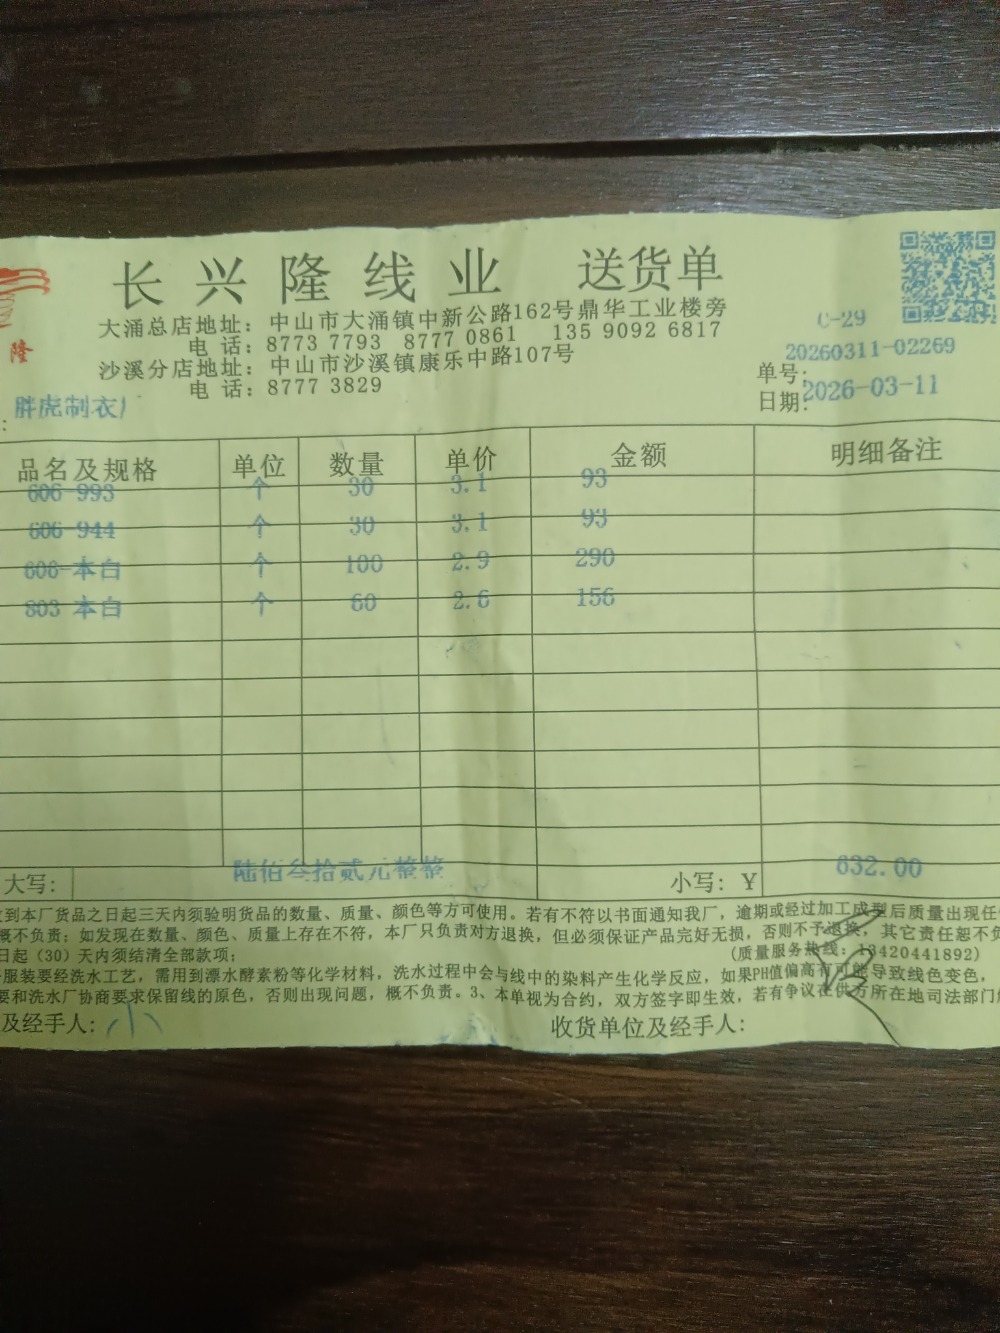 长兴隆线业 送货单
隆
大涌总店地址：中山市大涌镇中新公路162号鼎华工业楼旁
电 话：8773 7793 8777 0861 135 9092 6817
沙溪分店地址：中山市沙溪镇康乐中路107号
电 话：8777 3829
C-29
单号：20260311-02269
日期：2026-03-11
：胖虎制衣厂
品名及规格 单位 数量 单价 金额 明细备注
606-993 个 30 3.1 93
606-944 个 30 3.1 93
606-本白 个 100 2.9 290
803 本白 个 60 2.6 156
大写： 陆佰叁拾贰元整整 小写：￥ 632.00
到本厂货品之日起三天内须验明货品的数量、质量、颜色等方可使用。若有不符以书面通知我厂，逾期或经过加工成型后质量出现任
概不负责；如发现在数量、颜色、质量上存在不符，本厂只负责对方退换，但必须保证产品完好无损，否则不予退换，其它责任恕不负
日起（30）天内须结清全部款项； （质量服务热线：13420441892）
服装要经洗水工艺，需用到漂水酵素粉等化学材料，洗水过程中会与线中的染料产生化学反应，如果PH值偏高有可能导致线色变色，
要和洗水厂协商要求保留线的原色，否则出现问题，概不负责。3、本单视为合约，双方签字即生效，若有争议在供方所在地司法部门
及经手人：小 收货单位及经手人：